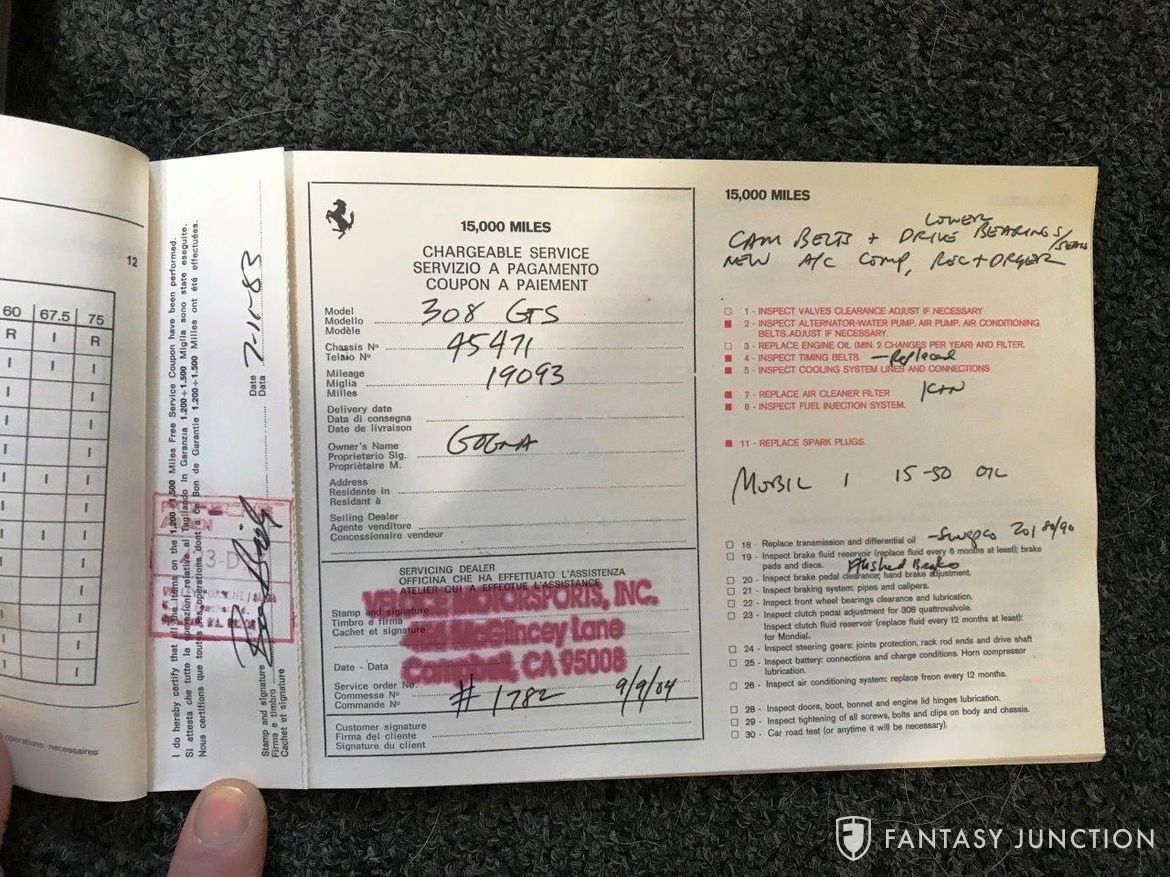 12
60 67.5 75
R I R
I I I
I
I
I
I I I
I
I I I
I
I
I
operations necessaires
I do hereby certify that all the items on the 1.200÷1.500 Miles Free Service Coupon have been performed.
Si attesta che tutte le operazioni relative al Tagliando in Garanzia 1.200÷1.500 Miglia sono state eseguite.
Nous certifions que toutes les operations dont à ce Bon de Garantie 1.200÷1.500 Miles ont été effectuées.
Date
Data
7-11-83
Stamp and signature
Firma e timbro
Cachet et signature
15,000 MILES
CHARGEABLE SERVICE
SERVIZIO A PAGAMENTO
COUPON A PAIEMENT
Model
Modello 308 GTS
Modèle
Chassis Nº 45471
Telaio Nº
Mileage
Miglia 19093
Milles
Delivery date
Data di consegna
Date de livraison
Owner's Name
Proprietario Sig. GOGNA
Propriètaire M.
Address
Residente in
Residant à
Selling Dealer
Agente venditore
Concessionaire vendeur
SERVICING DEALER
OFFICINA CHE HA EFFETTUATO L'ASSISTENZA
ATELIER QUI A EFFECTUE L'ASSISTANCE
MOTORSPORTS, INC.
Stamp and signature
Timbro e firma
Cachet et signature
McGlincey Lane
Campbell, CA 95008
Date - Data
Service order No.
Commessa Nº # 1782 9/9/04
Commande Nº
Customer signature
Firma del cliente
Signature du client
15,000 MILES
LOWER
CAM BELTS + DRIVE BEARINGS/SEALS
NEW A/C COMP, REC + DRYER
1 - INSPECT VALVES CLEARANCE ADJUST IF NECESSARY
2 - INSPECT ALTERNATOR-WATER PUMP. AIR PUMP. AIR CONDITIONING
BELTS. ADJUST IF NECESSARY.
3 - REPLACE ENGINE OIL (MIN. 2 CHANGES PER YEAR) AND FILTER.
4 - INSPECT TIMING BELTS. - Replaced
5 - INSPECT COOLING SYSTEM LINES AND CONNECTIONS
7 - REPLACE AIR CLEANER FILTER K&N
8 - INSPECT FUEL INJECTION SYSTEM.
11 - REPLACE SPARK PLUGS.
MOBIL 1 15-50 OIL
18 - Replace transmission and differential oil - Swepco 201 80/90
19 - Inspect brake fluid reservoir (replace fluid every 6 months at least); brake
pads and discs. Flushed Brakes
20 - Inspect brake pedal clearance; hand brake adjustment.
21 - Inspect braking system: pipes and calipers.
22 - Inspect front wheel bearings clearance and lubrication.
23 - Inspect clutch pedal adjustment for 308 quattrovalvole.
Inspect clutch fluid reservoir (replace fluid every 12 months at least):
for Mondial.
24 - Inspect steering gears: joints protection, rack rod ends and drive shaft
25 - Inspect battery: connections and charge conditions. Horn compressor
lubrication.
26 - Inspect air conditioning system: replace freon every 12 months.
28 - Inspect doors, boot, bonnet and engine lid hinges lubrication.
29 - Inspect tightening of all screws, bolts and clips on body and chassis.
30 - Car road test (or anytime it will be necessary).
FANTASY JUNCTION